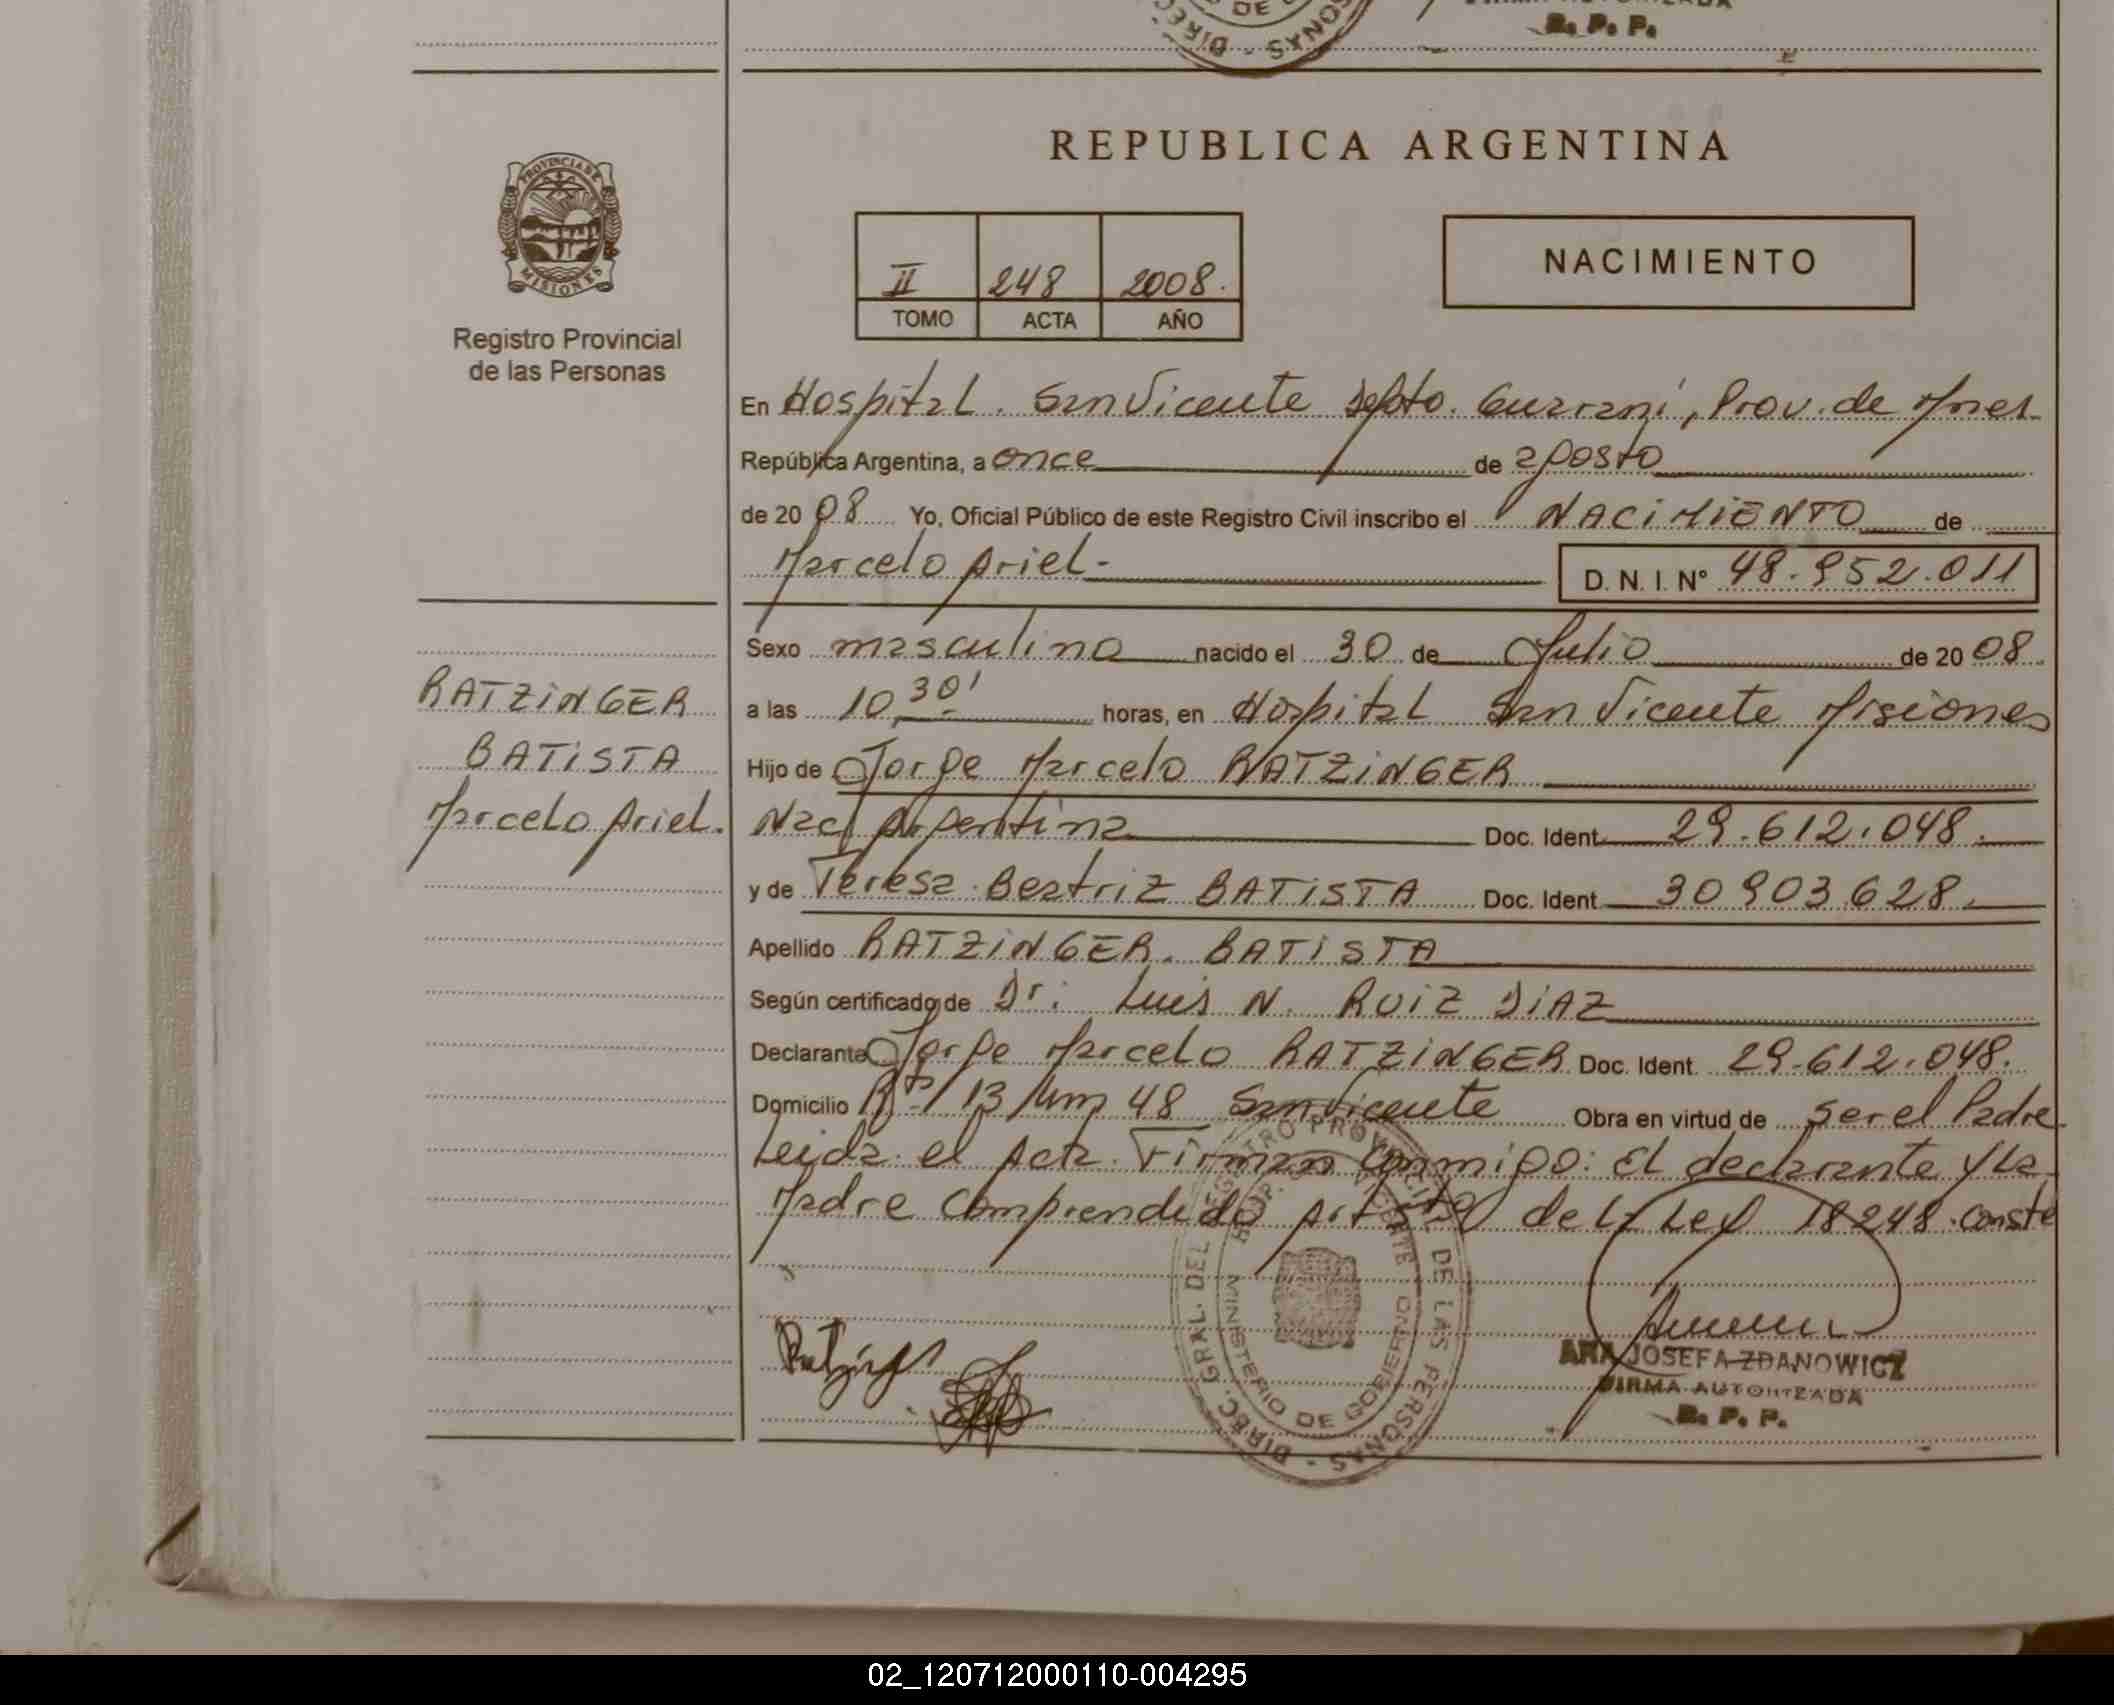 DE
DIREC
ONAS -
B. P. P.
PROVINCIA DE
MISIONES
Registro Provincial
de las Personas
REPUBLICA ARGENTINA
II 248 2008.
TOMO ACTA AÑO
NACIMIENTO
En Hospital. San Vicente Depto. Guarani, Prov. de Mnes
República Argentina, a once de agosto
de 20 08 Yo, Oficial Público de este Registro Civil inscribo el NACIMIENTO de
Marcelo Ariel- D. N. I. Nº 48.952.011
Sexo masculino nacido el 30 de Julio de 20 08
a las 10,30' horas, en Hospital San Vicente Misiones
Hijo de Jorge Marcelo RATZINGER
Nac. Argentina Doc. Ident. 29.612.048.
y de Teresa Beatriz BATISTA Doc. Ident. 30903628.
Apellido RATZINGER. BATISTA
Según certificado de Dr. Luis N. RUIZ DIAZ
Declarante Jorge Marcelo RATZINGER Doc. Ident. 29.612.048.
Domicilio Rta 13 Km 48 San Vicente Obra en virtud de ser el Padre
Leida el Acta. Firman Conmigo: El declarante y la
Madre Comprendido Art de la Ley 18248. Conste
RATZINGER
BATISTA
Marcelo Ariel.
DIREC. GRAL. DEL REGISTRO PROVINCIAL DE LAS PERSONAS -
HOSP. SAN VICENTE
MINISTERIO DE GOBIERNO
ANA JOSEFA ZDANOWICZ
FIRMA AUTORIZADA
R. P. P.
02_120712000110-004295